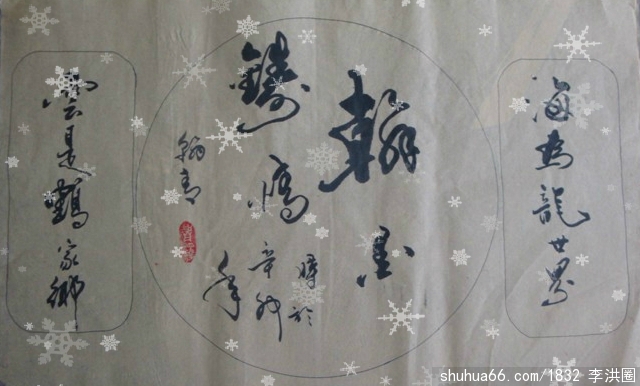 海為龍世界
翰墨
鑄情
時於
辛卯
年
翰青
雲是鶴家鄉
shuhua66.com/1832 李洪圈